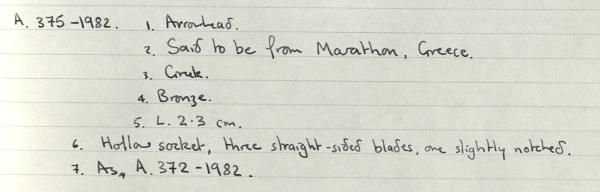 A. 375-1982. 1. Arrowhead.
2. Said to be from Marathon, Greece.
3. Greek.
4. Bronze.
5. L. 2.3 cm.
6. Hollow socket, three straight-sided blades, one slightly notched.
7. As, A. 372-1982.